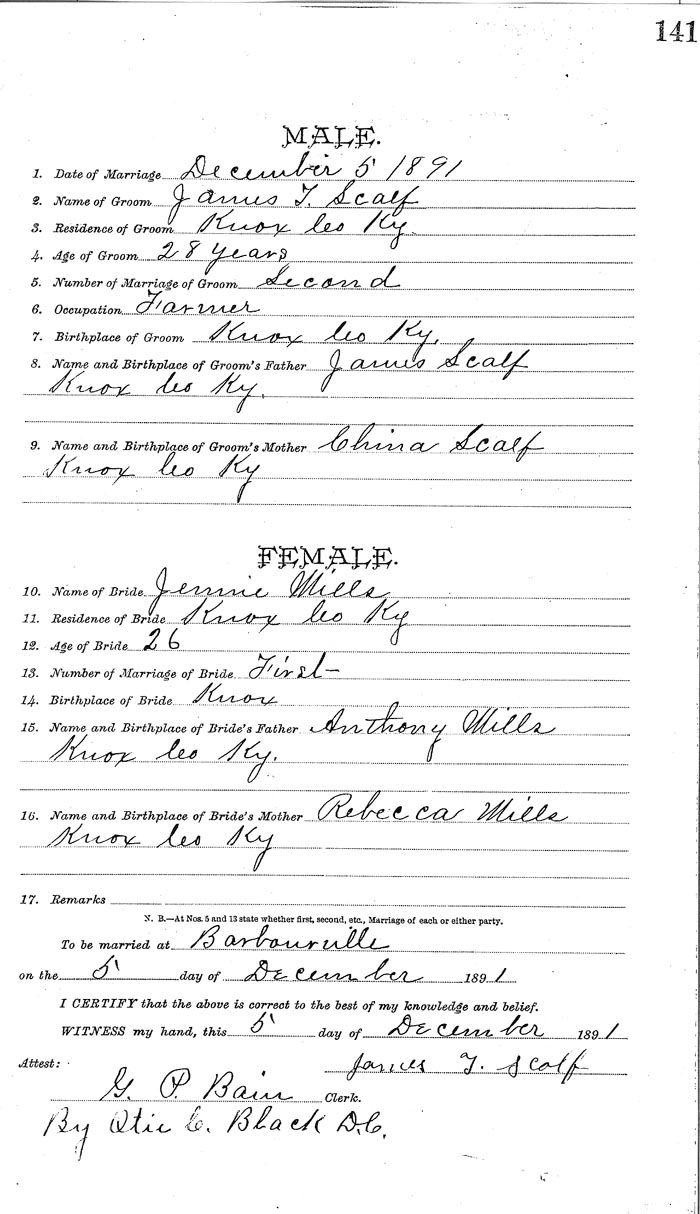 141
MALE.
1. Date of Marriage December 5 1891
2. Name of Groom James T. Scalf
3. Residence of Groom Knox Co Ky.
4. Age of Groom 28 years
5. Number of Marriage of Groom Second
6. Occupation Farmer
7. Birthplace of Groom Knox Co Ky.
8. Name and Birthplace of Groom's Father James Scalf
Knox Co Ky.
9. Name and Birthplace of Groom's Mother China Scalf
Knox Co Ky
FEMALE.
10. Name of Bride Jennie Mills
11. Residence of Bride Knox Co Ky
12. Age of Bride 26
13. Number of Marriage of Bride First
14. Birthplace of Bride Knox
15. Name and Birthplace of Bride's Father Anthony Mills
Knox Co Ky.
16. Name and Birthplace of Bride's Mother Rebecca Mills
Knox Co Ky
17. Remarks
N. B.—At Nos. 5 and 13 state whether first, second, etc., Marriage of each or either party.
To be married at Barbourville
on the 5 day of December 1891
I CERTIFY that the above is correct to the best of my knowledge and belief.
WITNESS my hand, this 5 day of December 1891
Attest: James T. Scalf
G. P. Bain Clerk.
By Otie C. Black D.C.